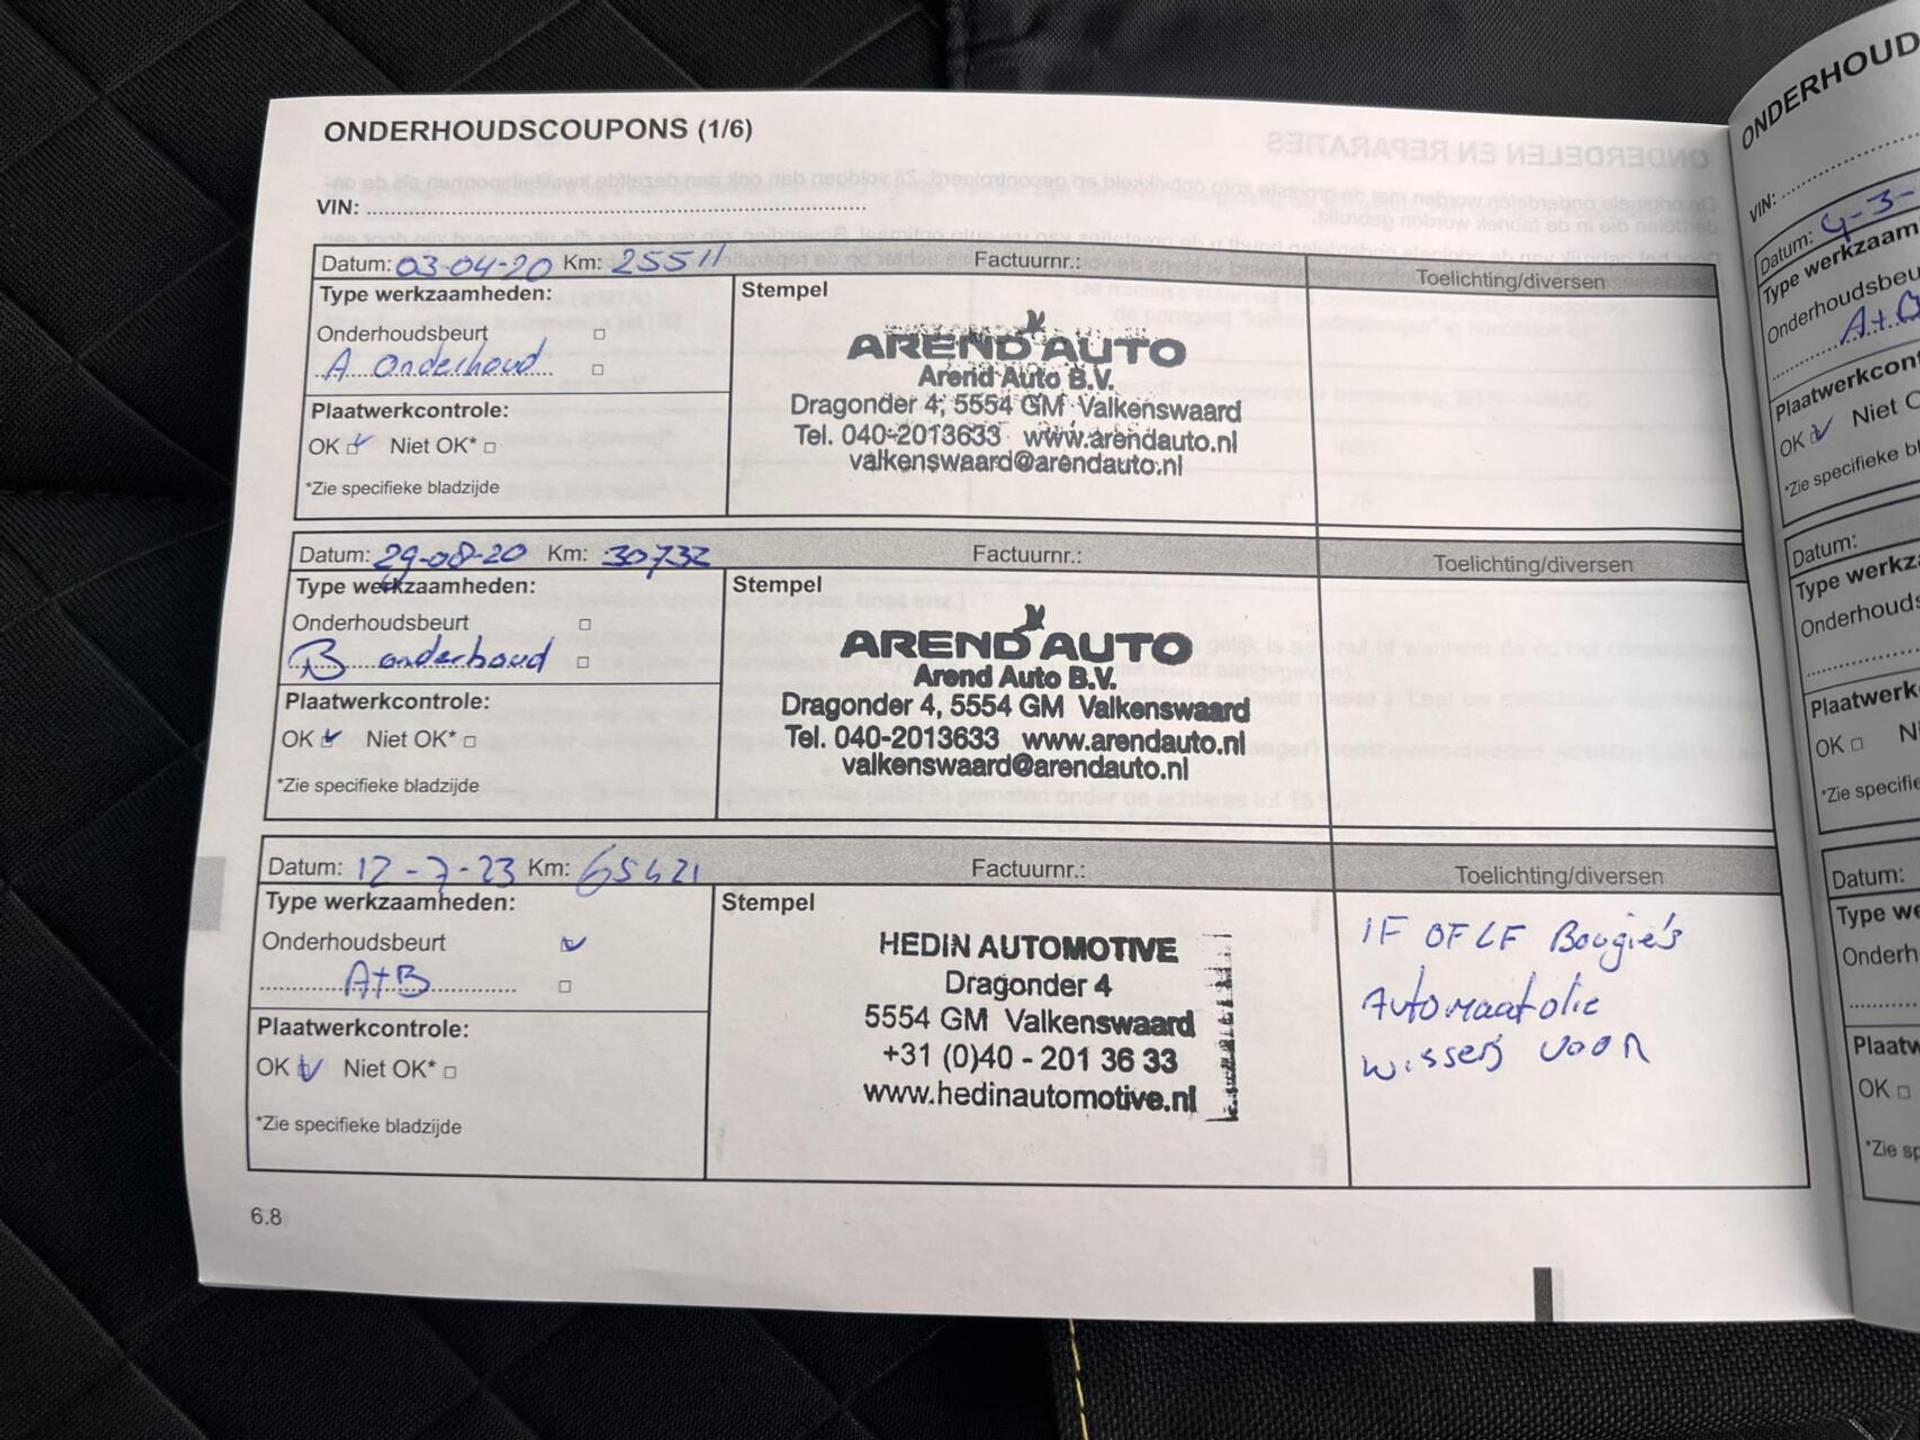 ONDERHOUDSCOUPONS (1/6)
VIN:
Datum: 03-04-20 Km: 25511 Factuurnr.: Toelichting/diversen
Type werkzaamheden:
Stempel
Onderhoudsbeurt
A Onderhoud
Plaatwerkcontrole:
OK Niet OK*
*Zie specifieke bladzijde
AREND AUTO
Arend Auto B.V.
Dragonder 4, 5554 GM Valkenswaard
Tel. 040-2013633 www.arendauto.nl
valkenswaard@arendauto.nl
Datum: 29-08-20 Km: 30732 Factuurnr.: Toelichting/diversen
Type werkzaamheden:
Stempel
Onderhoudsbeurt
B onderhoud
Plaatwerkcontrole:
OK Niet OK*
*Zie specifieke bladzijde
AREND AUTO
Arend Auto B.V.
Dragonder 4, 5554 GM Valkenswaard
Tel. 040-2013633 www.arendauto.nl
valkenswaard@arendauto.nl
Datum: 12-7-23 Km: 65421 Factuurnr.: Toelichting/diversen
Type werkzaamheden:
Stempel
Onderhoudsbeurt
A+B
Plaatwerkcontrole:
OK Niet OK*
*Zie specifieke bladzijde
HEDIN AUTOMOTIVE
Dragonder 4
5554 GM Valkenswaard
+31 (0)40 - 201 36 33
www.hedinautomotive.nl
IF OF LF Bougie's
Automaatolie
wissers voor
6.8
ONDERHOUD
VIN:
Datum: 4-3-
Type werkzaam
Onderhoudsbeu
A+
Plaatwerkcont
OK Niet O
*Zie specifieke bl
Datum:
Type werkz
Onderhouds
Plaatwerk
OK N
*Zie specifie
Datum:
Type we
Onderh
Plaatw
OK
*Zie sp